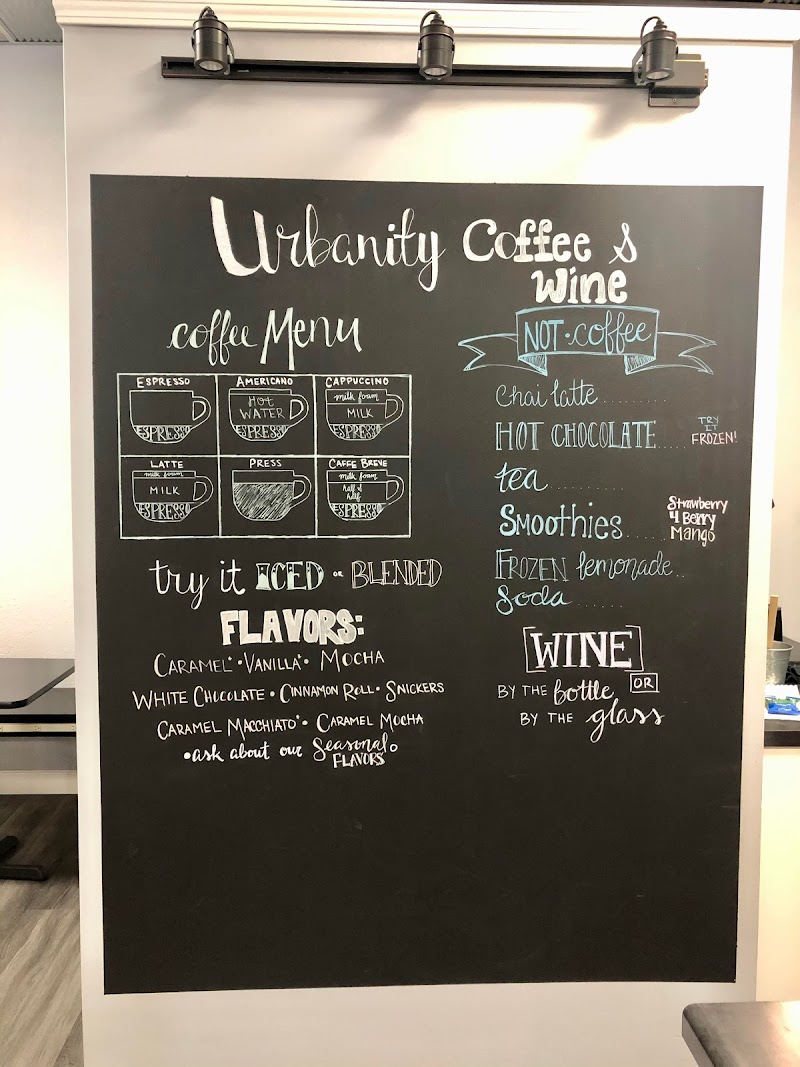 Urbanity Coffee &
Wine
coffee Menu
ESPRESSO
ESPRESSO
AMERICANO
HOT
WATER
ESPRESSO
CAPPUCCINO
milk foam
MILK
ESPRESSO
LATTE
milk foam
MILK
ESPRESSO
PRESS
CAFFE BREVE
milk foam
half &
half
ESPRESSO
try it ICED OR BLENDED
FLAVORS:
CARAMEL* • VANILLA* • MOCHA
WHITE CHOCOLATE • CINNAMON ROLL • SNICKERS
CARAMEL MACCHIATO* • CARAMEL MOCHA
•ask about our Seasonal
FLAVORS
NOT • coffee
Chai latte ..........
HOT CHOCOLATE .....
TRY
IT
FROZEN!
tea ..........
Smoothies ......
Strawberry
4 Berry
Mango
FROZEN lemonade ..
Soda ......
[WINE]
BY THE bottle OR
BY THE glass